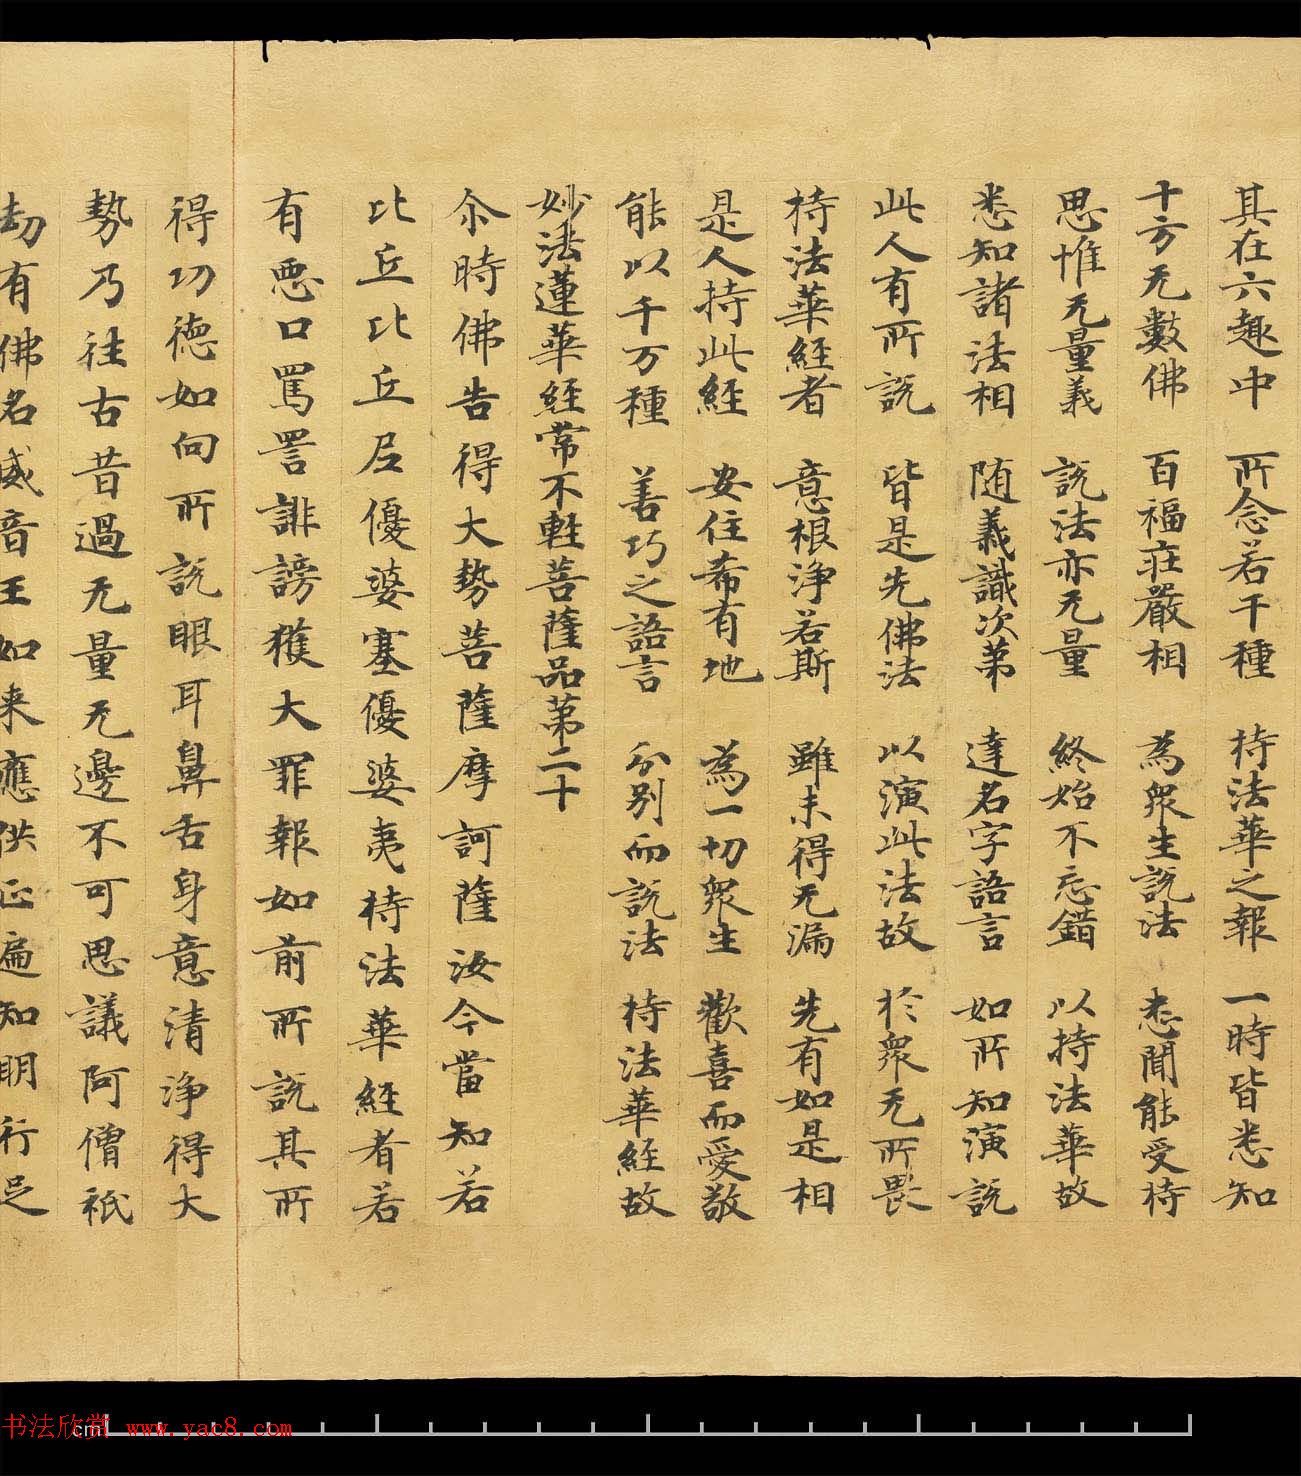 其在六趣中　所念若干種　持法華之報　一時皆悉知
十方无數佛　百福莊嚴相　為眾生說法　悉聞能受持
思惟无量義　說法亦无量　終始不忘錯　以持法華故
悉知諸法相　随義識次第　達名字語言　如所知演說
此人有所說　皆是先佛法　以演此法故　於眾无所畏
持法華經者　意根淨若斯　雖未得无漏　先有如是相
是人持此經　安住希有地　為一切眾生　歡喜而愛敬
能以千万種　善巧之語言　分別而說法　持法華經故
妙法蓮華經常不輕菩薩品第二十
尒時佛告得大勢菩薩摩訶薩汝今當知若
比丘比丘尼優婆塞優婆夷持法華經者若
有惡口罵詈誹謗獲大罪報如前所說其所
得功德如向所說眼耳鼻舌身意清淨得大
勢乃往古昔過无量无邊不可思議阿僧祇
劫有佛名威音王如来應供正遍知明行足
书法欣赏 www.yac8.com
cm